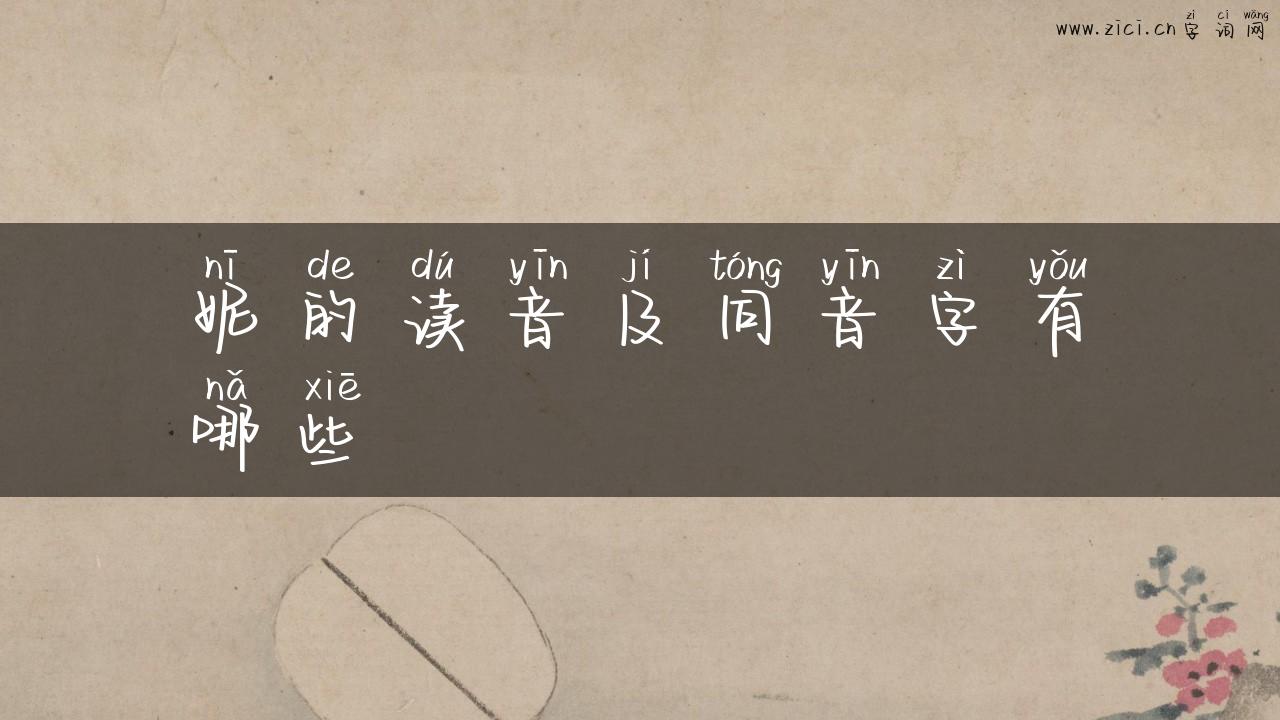 zì cí wǎng
www.zici.cn字词网
nī de dú yīn jí tóng yīn zì yǒu
妮的读音及同音字有
nǎ xiē
哪些